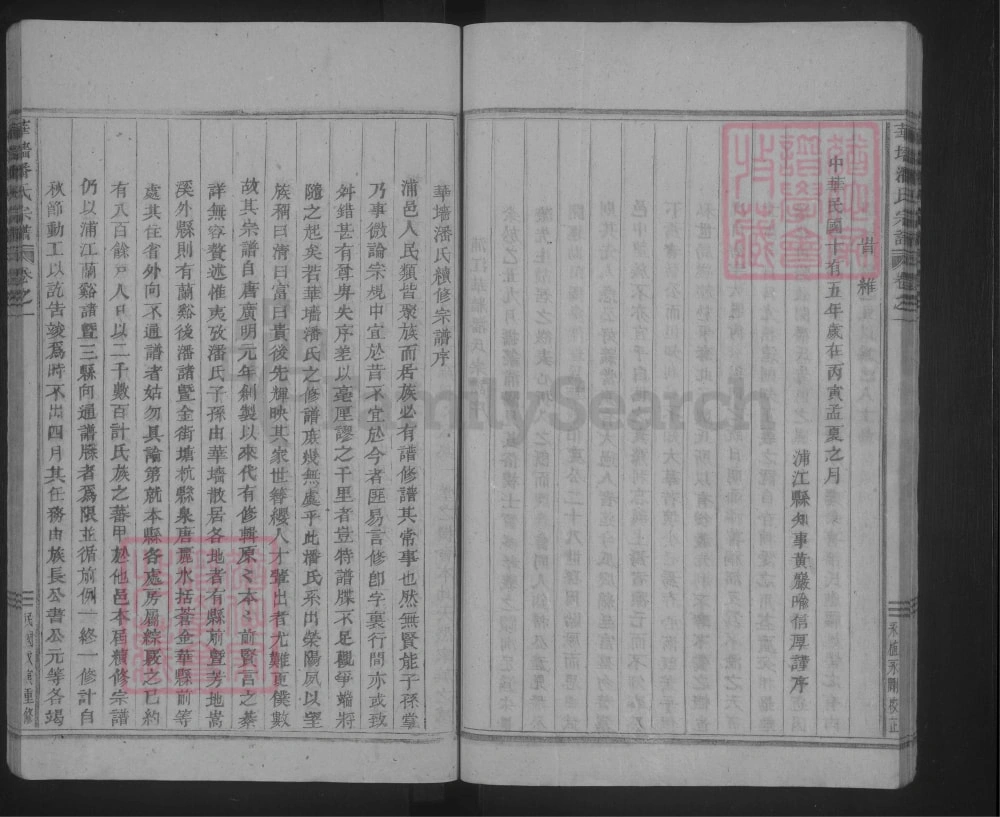 華墻潘氏宗譜 卷之一
中華民國十有五年歲在丙寅孟夏之月
浦江縣知事黃巖喻信厚謹序
華墻潘氏續修宗譜序
浦邑人民類皆聚族而居族必有譜修譜其常事也然無賢能子孫掌
乃事微論宗規中宜於昔不宜於今者匪易言修卽字裏行間亦或致
舛錯甚有尊卑失序差以毫厘謬之千里者豈特譜牒不足觀爭端將
隨之起矣若華墻潘氏之修譜庶幾無虞乎此潘氏系出榮陽夙以望
族稱曰清曰富曰貴後先輝映其家世簪纓人才輩出者尤難更僕數
故其宗譜自唐廣明元年創製以來代有修輯原〻本〻前賢言之綦
詳無容贅述惟夷攷潘氏子孫由華墻散居各地者有縣前暨芳地嵩
溪外縣則有蘭谿後潘諸暨金街塘杭縣泉唐麗水括蒼金華縣前等
處其住省外向不通譜者姑勿具論第就本縣各處房屬綜覈之已約
有八百餘戶人口以二千數百計氏族之蕃甲於他邑本屆續修宗譜
仍以浦江蘭谿諸暨三縣向通譜牒者爲限並循前例一終一修計自
秋節動工以訖告竣爲時不出四月其任務由族長公書公元等各竭
華墻潘氏宗譜 卷之一
民國戊寅重修